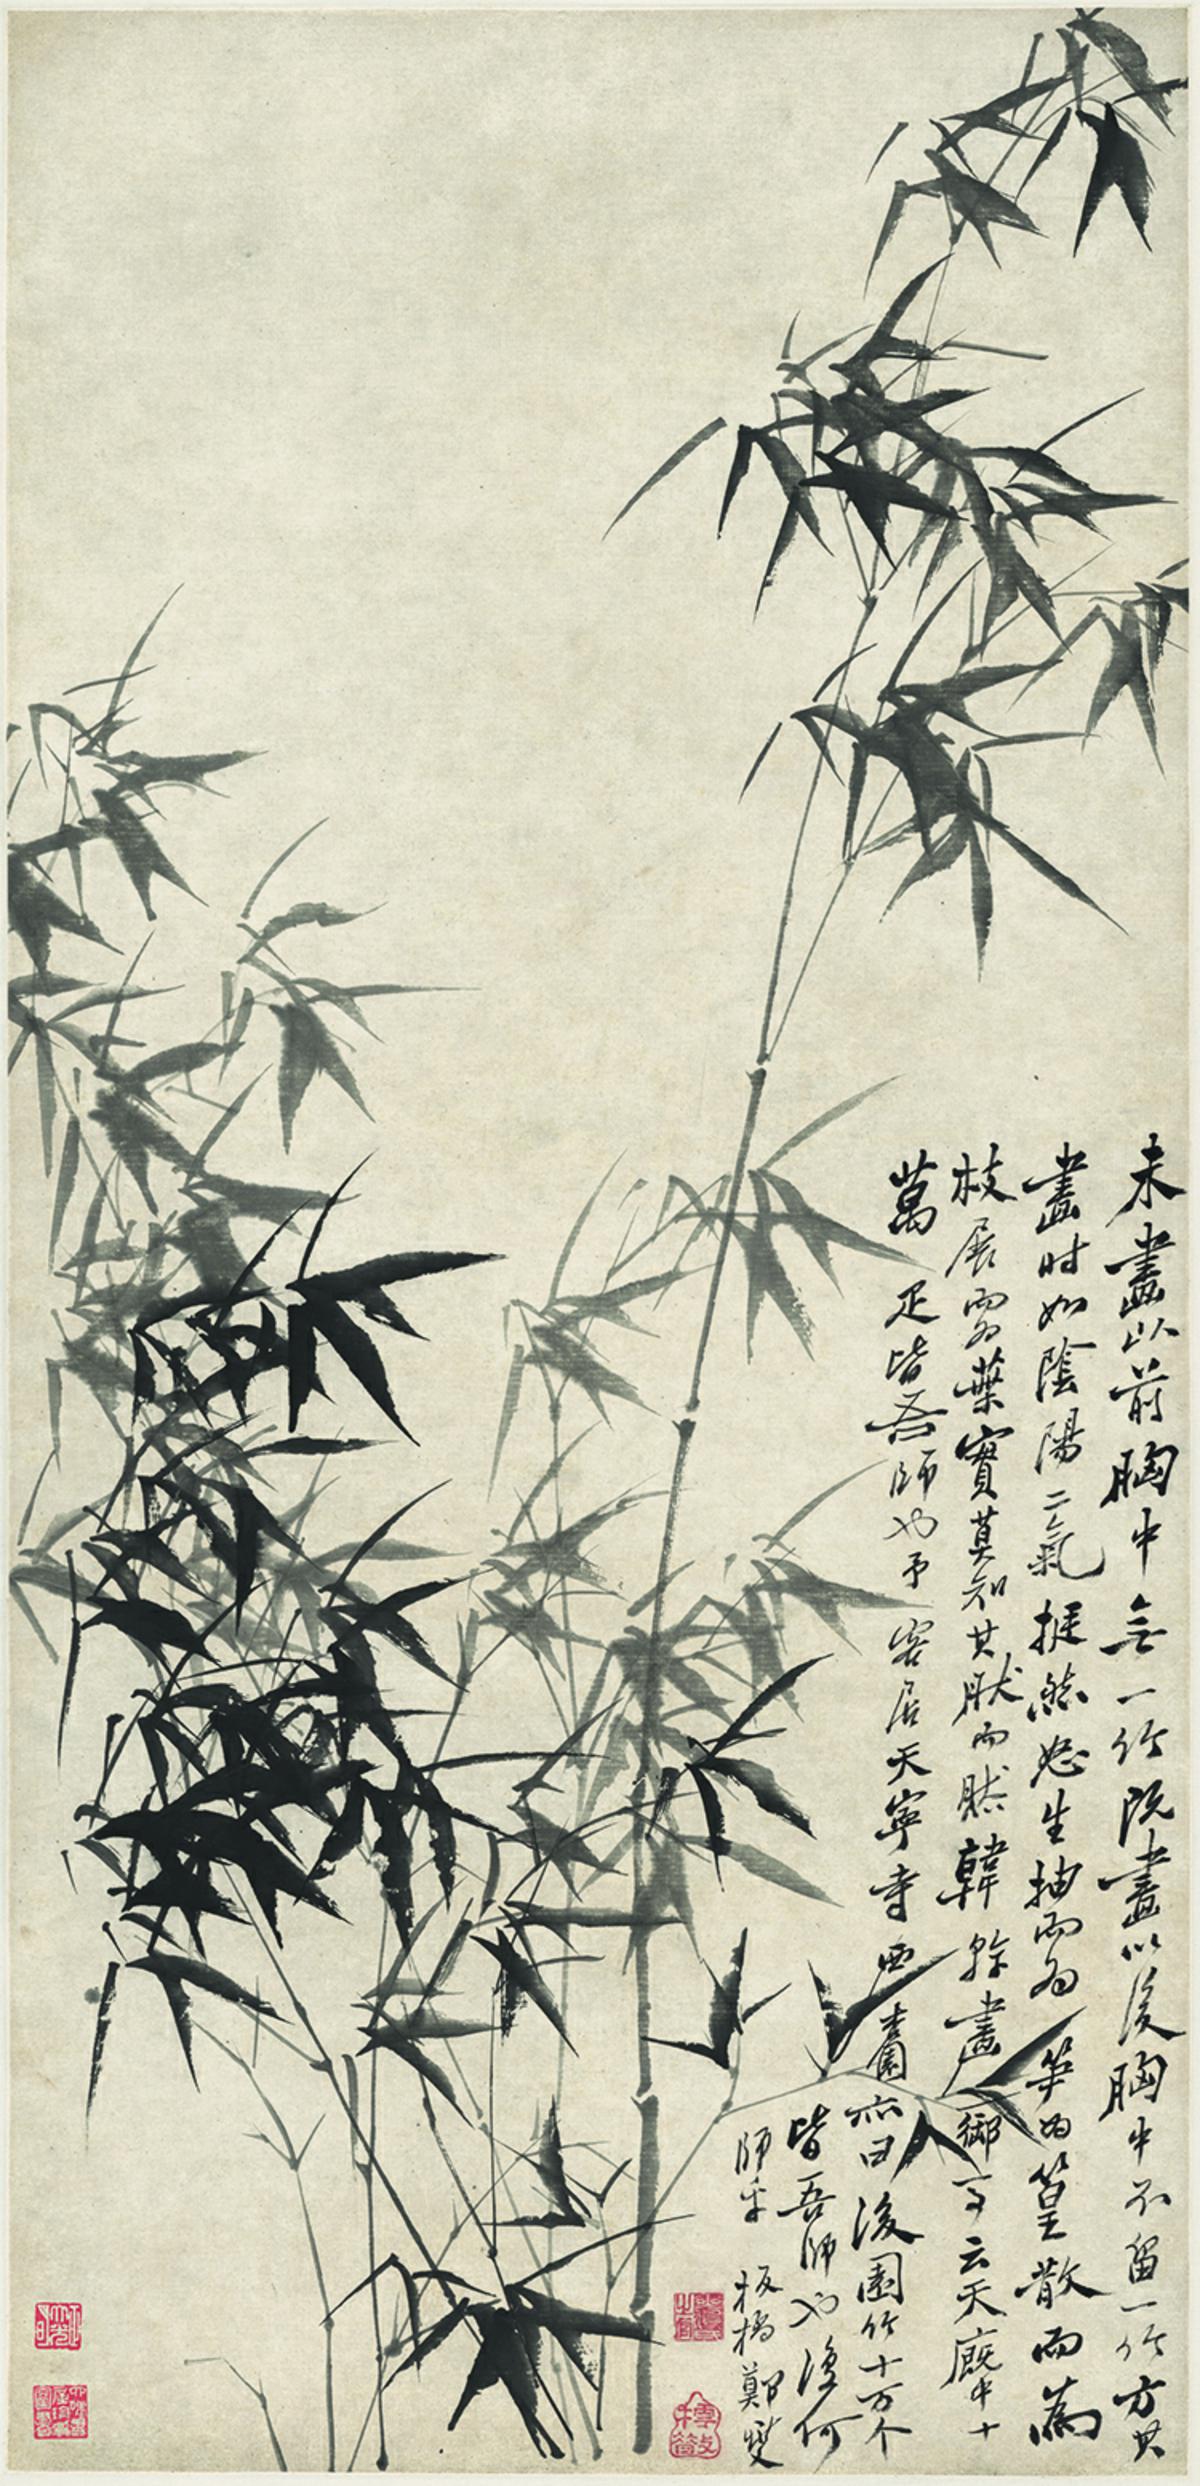 未畫以前胸中無一竹既畫以後胸中不留一竹方其
畫時如陰陽二氣挺然怒生抽而為筍為篁散而為
枝展而為葉實莫知其肰而肰韓幹畫御馬云天廐中十
萬疋皆吾師也予客居天寧寺西杏園亦曰後園竹十万个
皆吾師也復何
師乎 板橋鄭燮